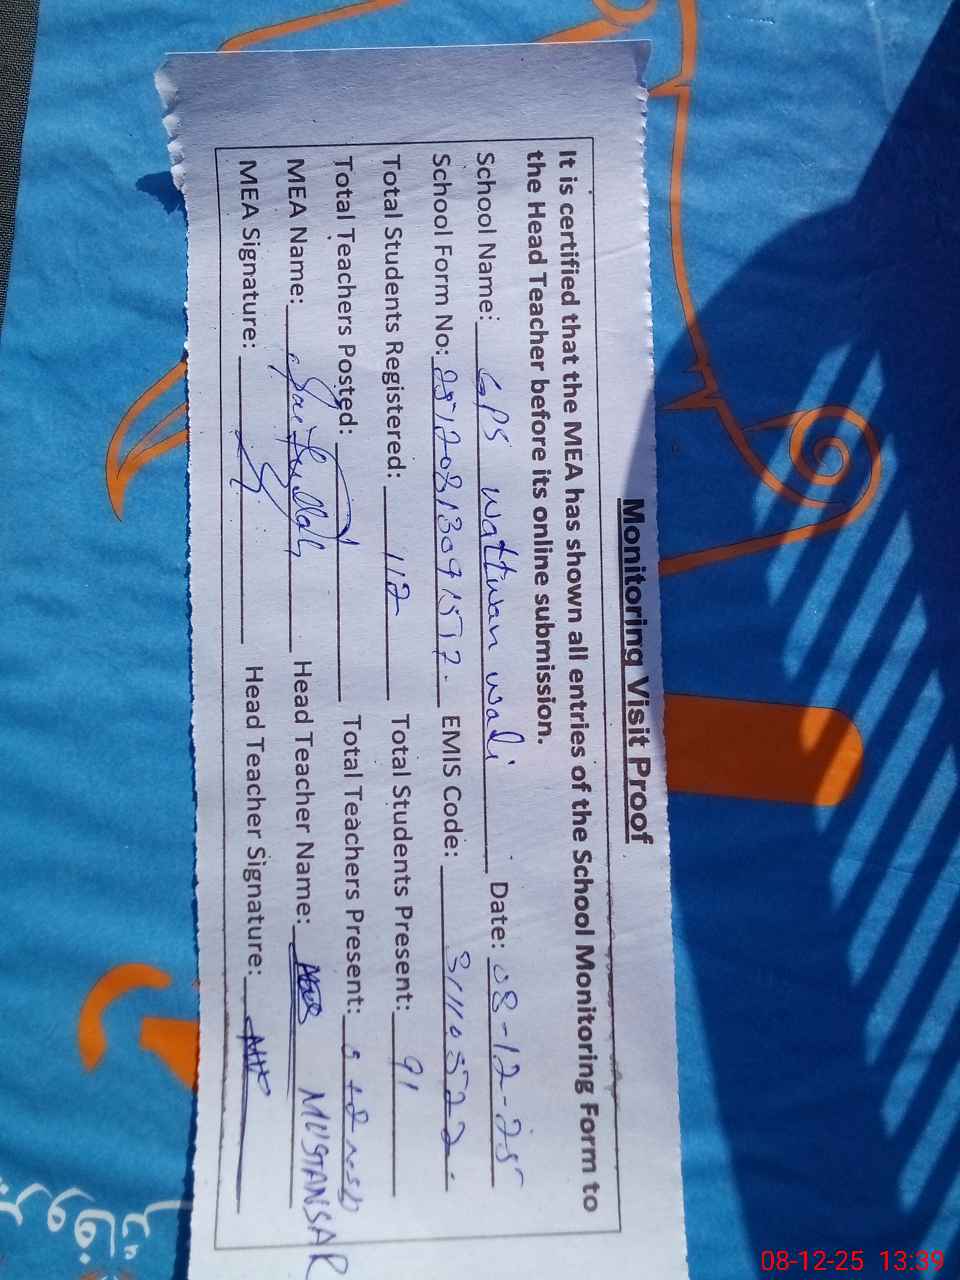 Monitoring Visit Proof
It is certified that the MEA has shown all entries of the School Monitoring Form to
the Head Teacher before its online submission.
School Name: GPS Wattwan wali Date: 08-12-25
School Form No: EMIS Code:
Total Students Registered: 112 Total Students Present: 91
Total Teachers Posted: Total Teachers Present:
MEA Name: Saifullah Head Teacher Name: MUSTANSAR
MEA Signature: Head Teacher Signature:
08-12-25 13:39